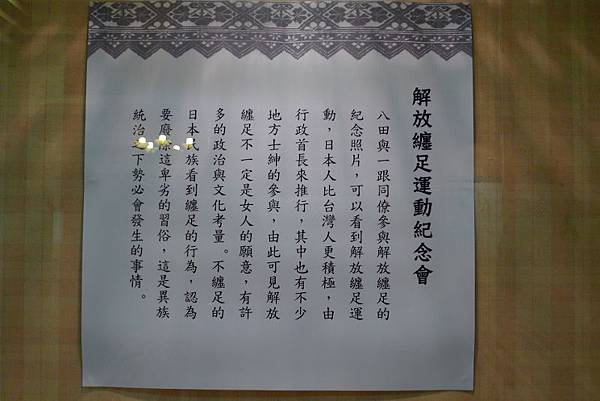 解放纏足運動紀念會
八田與一跟同僚參與解放纏足的
紀念照片，可以看到解放纏足運
動，日本人比台灣人更積極，由
行政首長來推行，其中也有不少
地方士紳的參與，由此可見解放
纏足不一定是女人的願意，有許
多的政治與文化考量。不纏足的
日本民族看到纏足的行為，認為
要廢除這卑劣的習俗，這是異族
統治之下勢必會發生的事情。